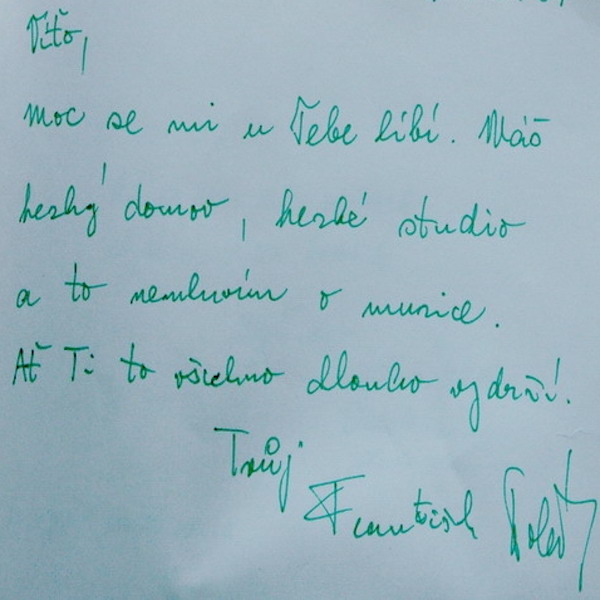 Víťo,
moc se mi u Tebe líbí. Máš
hezký domov, hezké studio
a to nemluvím o muzice.
Ať Ti to všechno dlouho vydrží!
Tvůj
František